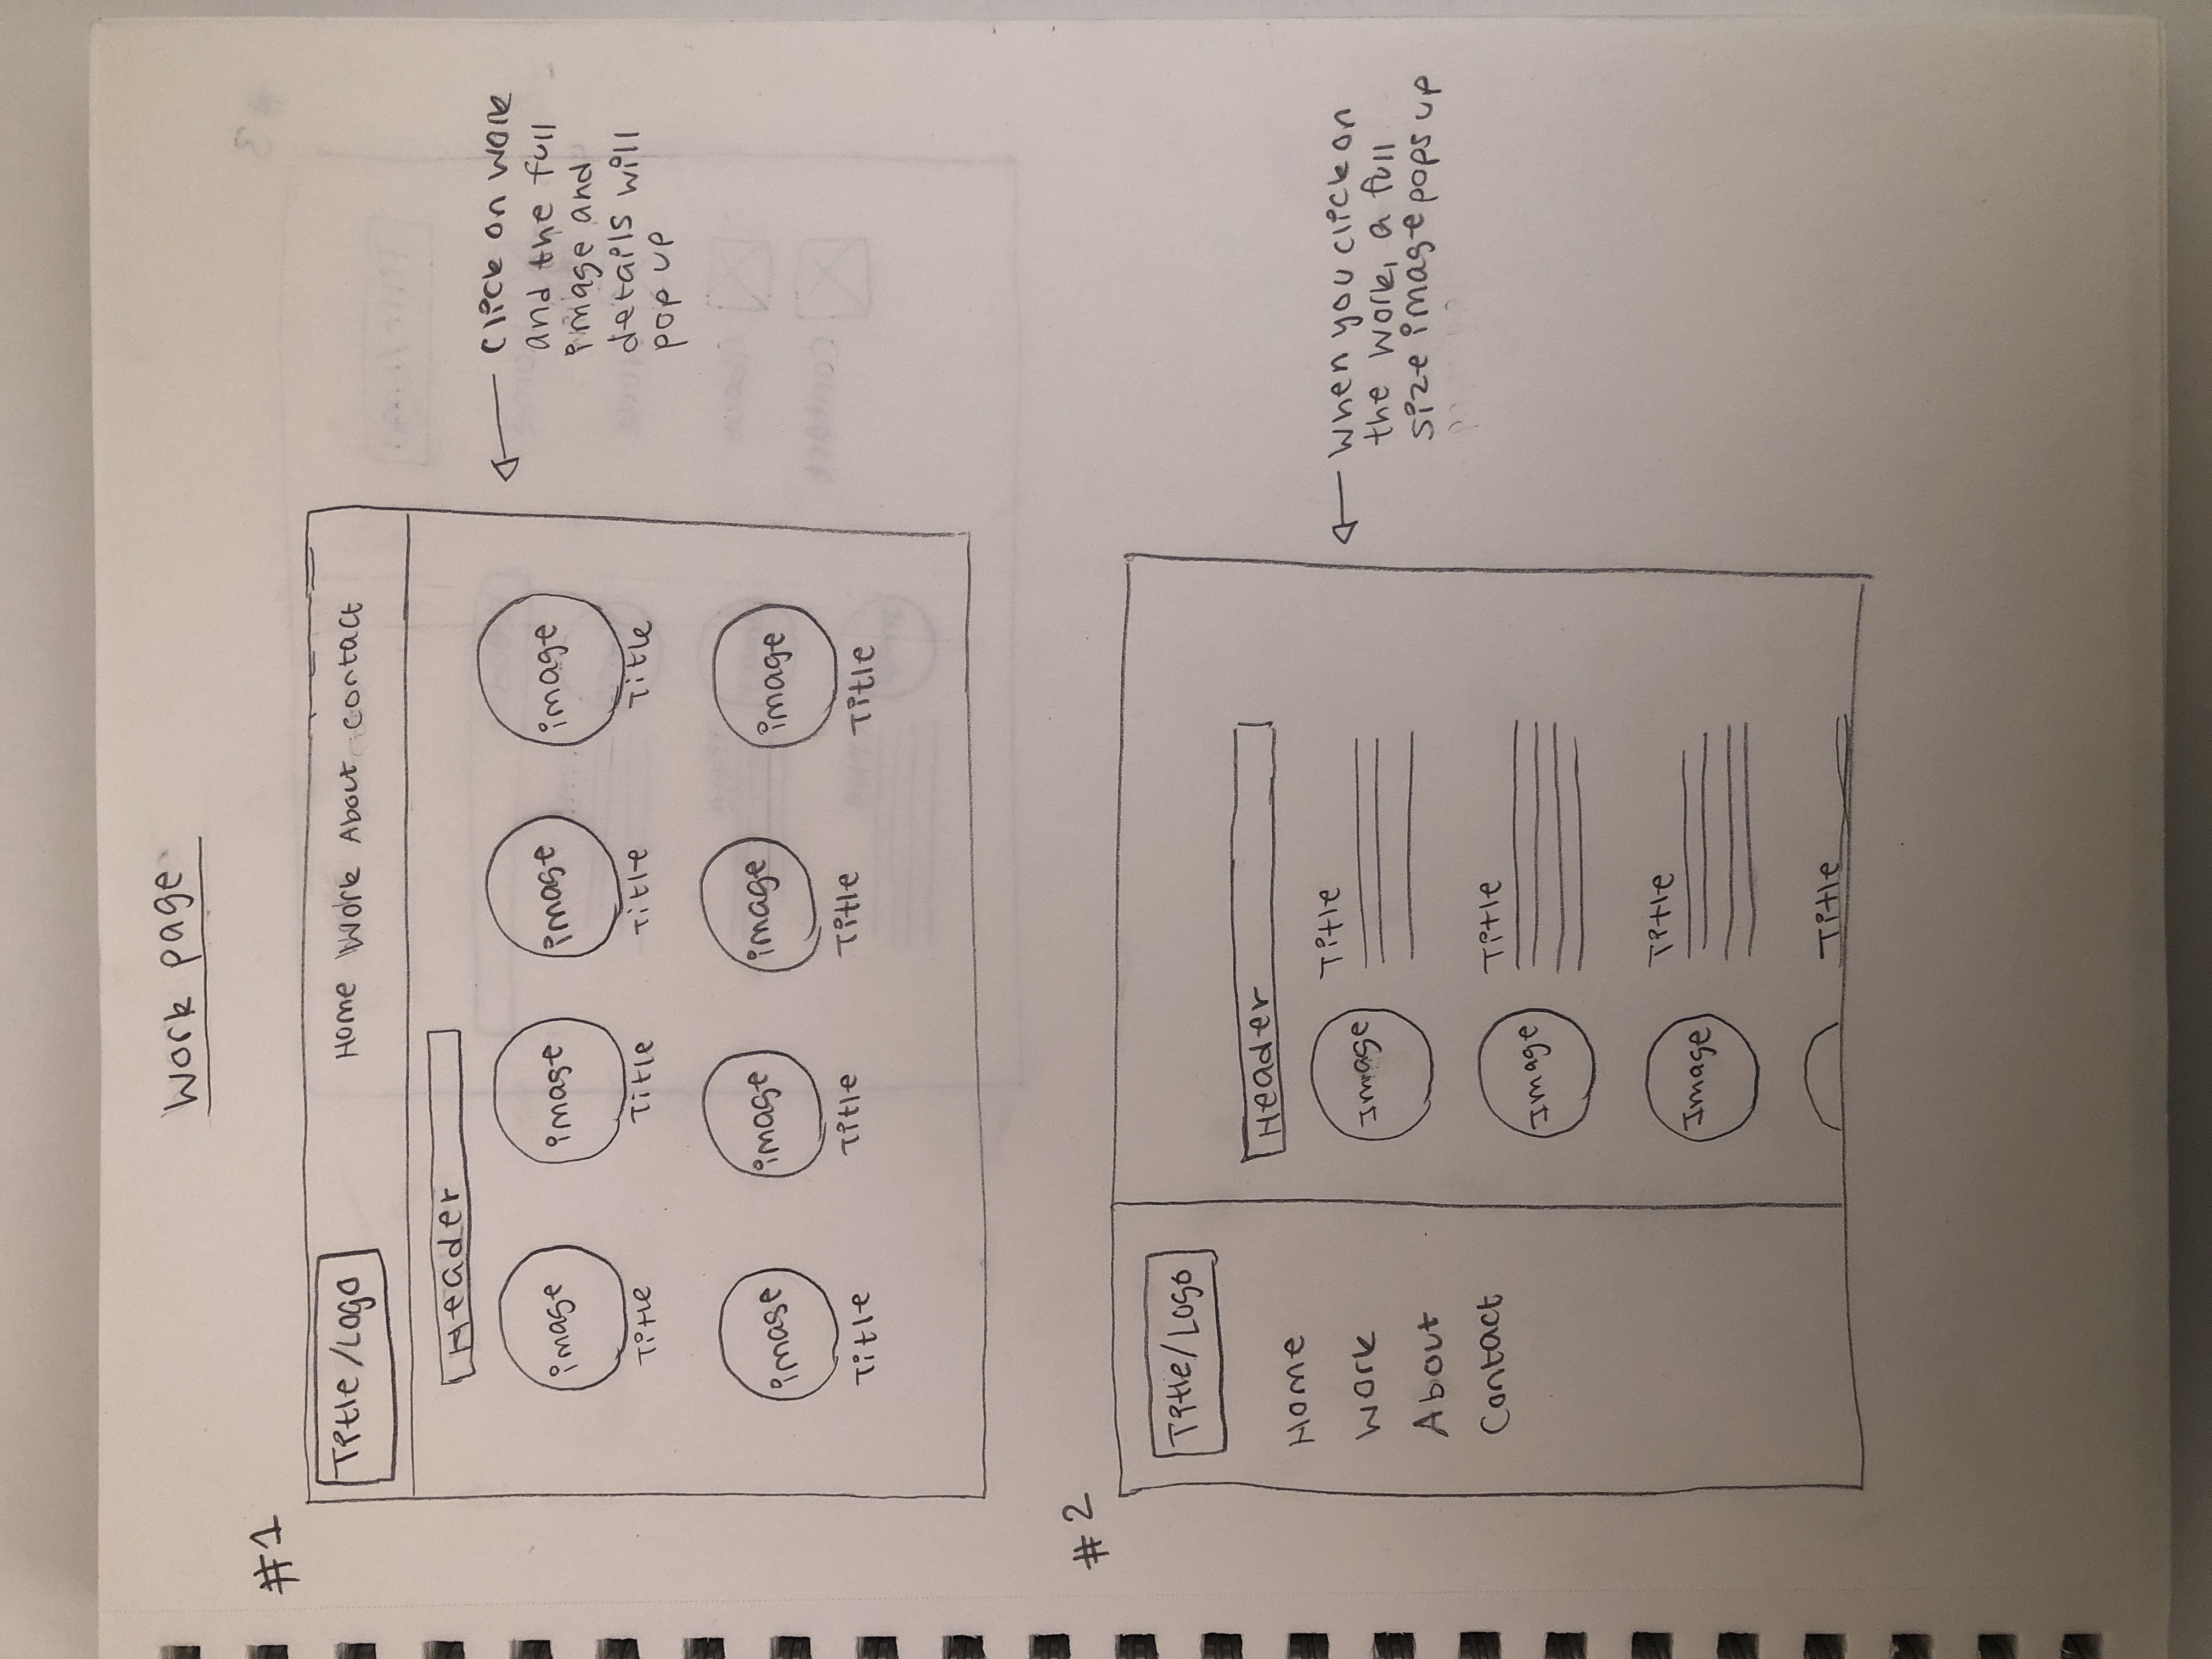 Work page
#1
Title/Logo
Home Work About Contact
Header
image image image image
Title Title Title Title
image image image image
Title Title Title Title
Click on work
and the full
image and
details will
pop up
#2
Title/Logo
Home
Work
About
Contact
Header
Image
Title
Image
Title
Image
Title
Title
When you click on
the work, a full
size image pops up